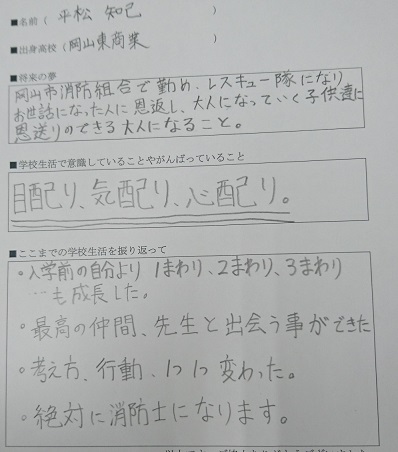 ■名前（ 平松 知己 ）
■出身高校（岡山東商業 ）
■将来の夢
岡山市消防組合で勤め、レスキュー隊になり
お世話になった人に恩返し、大人になっていく子供達に
恩送りのできる大人になること。
■学校生活で意識していることやがんばっていること
目配り、気配り、心配り。
■ここまでの学校生活を振り返って
・入学前の自分より 1まわり、2まわり、3まわり
…も成長した。
・最高の仲間、先生と出会う事ができた
・考え方、行動、1つ1つ変わった。
・絶対に消防士になります。